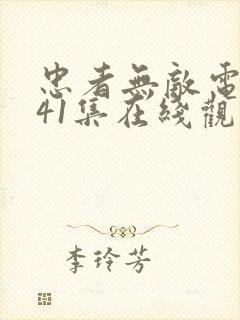 忠者無敵電
41集在綫觀
李玲芳